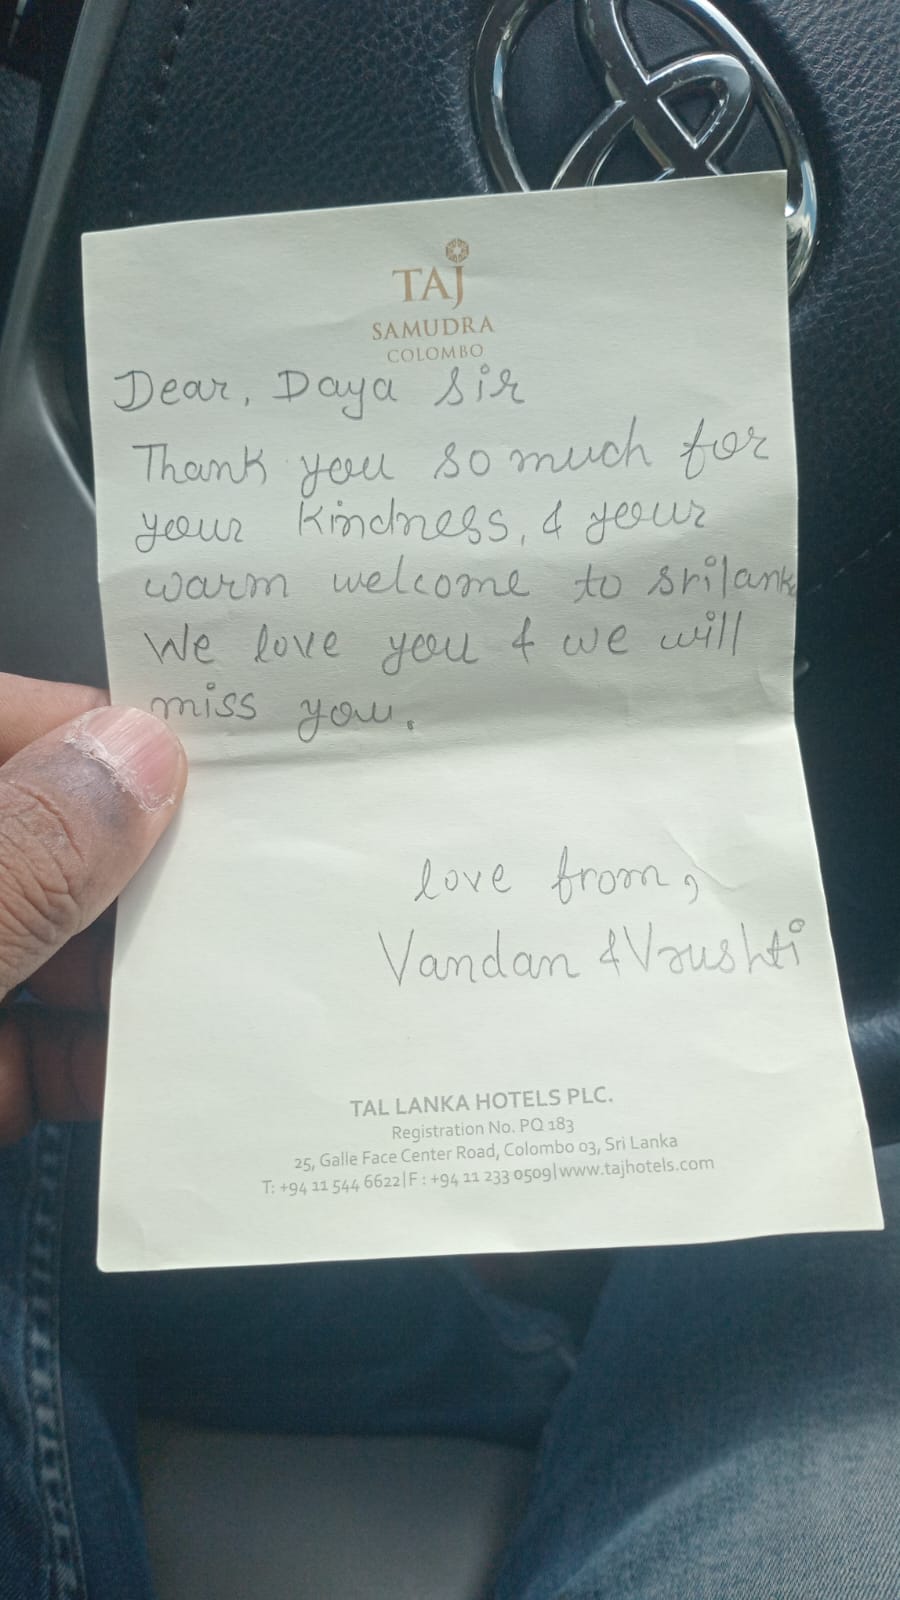 TAJ
SAMUDRA
COLOMBO
Dear, Daya Sir
Thank you so much for
your kindness, & your
warm welcome to srilanka
We love you & we will
miss you.
love from,
Vandan & Vrushti
TAL LANKA HOTELS PLC.
Registration No. PQ 183
25, Galle Face Center Road, Colombo 03, Sri Lanka
T: +94 11 544 6622|F : +94 11 233 0509|www.tajhotels.com